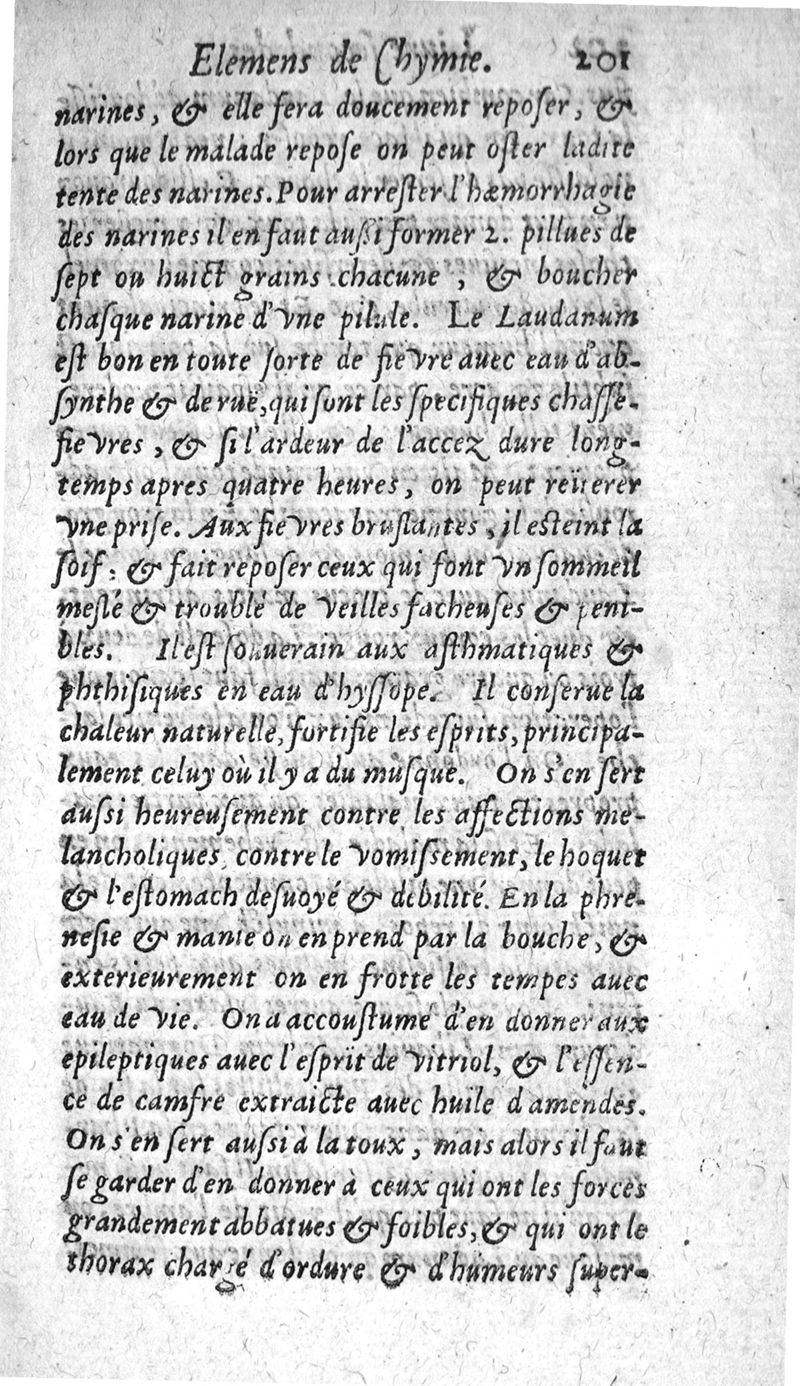 Elemens de Chymie. 201
narines, & elle fera doucement reposer, &
lors que le malade repose on peut oster ladite
tente des narines. Pour arrester l'hæmorrhagie
des narines il en faut aussi former 2. pillues de
sept ou huict grains chacune, & boucher
chasque narine d'vne pilule. Le Laudanum
est bon en toute sorte de fievre auec eau d'ab-
synthe & de ruë, qui sont les specifiques chasse-
fievres, & si l'ardeur de l'accez dure long-
temps apres quatre heures, on peut reïterer
vne prise. Aux fievres bruslantes, il esteint la
soif: & fait reposer ceux qui font vn sommeil
meslé & troublé de veilles facheuses & peni-
bles. Il est souuerain aux asthmatiques &
phthisiques en eau d'hyssope. Il conserue la
chaleur naturelle, fortifie les esprits, principa-
lement celuy où il y a du musque. On s'en sert
aussi heureusement contre les affections me-
lancholiques, contre le vomissement, le hoquet
& l'estomach desuoyé & debilité. En la phre-
nesie & manie on en prend par la bouche, &
exterieurement on en frotte les tempes auec
eau de vie. On a accoustumé d'en donner aux
epileptiques auec l'esprit de vitriol, & l'essen-
ce de camfre extraicte auec huile d'amendes.
On s'en sert aussi à la toux, mais alors il faut
se garder d'en donner à ceux qui ont les forces
grandement abbatues & foibles, & qui ont le
thorax chargé d'ordure & d'humeurs super-